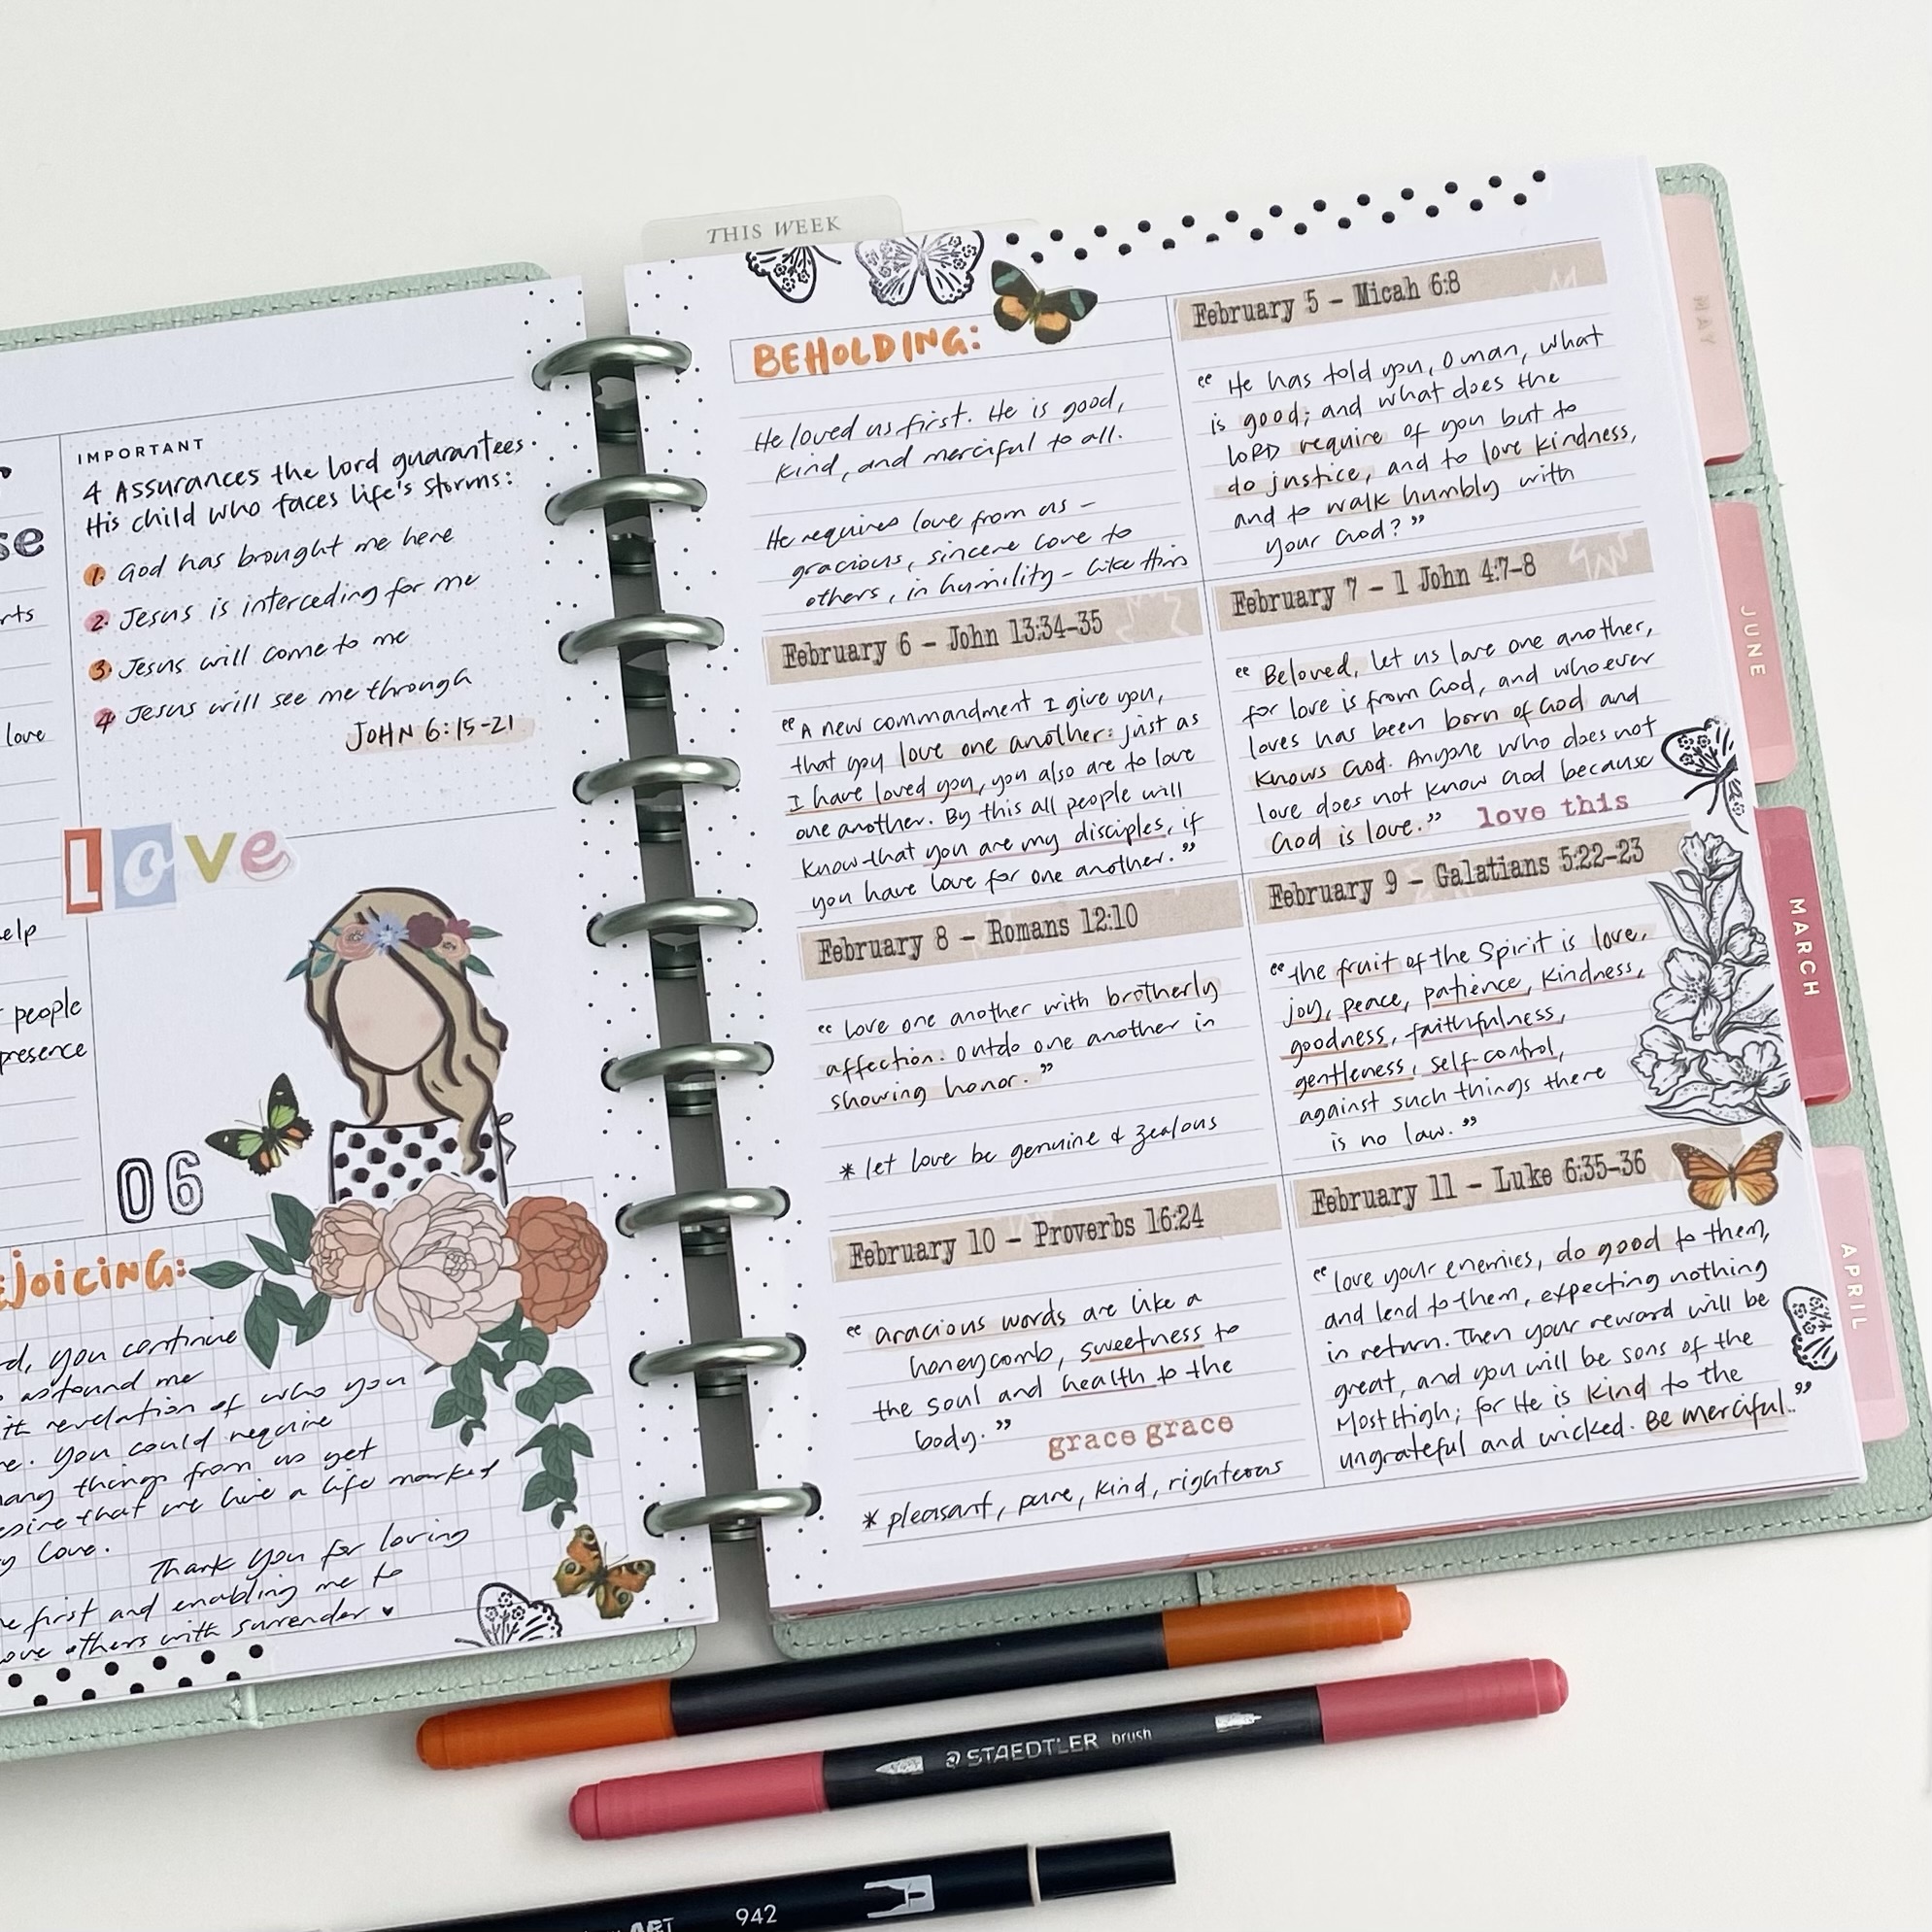 THIS WEEK
se
rts
love
elp
people
presence
IMPORTANT
4 Assurances the Lord guarantees
His child who faces life's storms:
1. God has brought me here
2. Jesus is interceding for me
3. Jesus will come to me
4 Jesus will see me through
JOHN 6:15-21
Love
06
EJOICING:
rd, you continue
astound me
revelation of who you
re. You could require
many things from us yet
desire that we live a life marked
by love.
Thank You for loving
me first and enabling me to
love others with surrender ♥
BEHOLDING:
He loved us first. He is good,
kind, and merciful to all.
He requires love from us -
gracious, sincere love to
others, in humility - like this
February 5 - Micah 6:8
"He has told you, O man, what
is good; and what does the
LORD require of you but to
do justice, and to love kindness,
and to walk humbly with
your God?"
February 6 - John 13:34-35
"A new commandment I give you,
that you love one another: just as
I have loved you, you also are to love
one another. By this all people will
know that you are my disciples, if
you have love for one another."
February 7 - 1 John 4:7-8
"Beloved, let us love one another,
for love is from God, and whoever
loves has been born of God and
knows God. Anyone who does not
love does not know God because
God is love." love this
February 8 - Romans 12:10
"love one another with brotherly
affection. Outdo one another in
showing honor."
* let love be genuine & zealous
February 9 - Galatians 5:22-23
"the fruit of the Spirit is love,
joy, peace, patience, kindness,
goodness, faithfulness,
gentleness, self-control,
against such things there
is no law."
February 10 - Proverbs 16:24
"Gracious words are like a
honeycomb, sweetness to
the soul and health to the
body."
grace grace
* pleasant, pure, kind, righteous
February 11 - Luke 6:35-36
"love your enemies, do good to them,
and lend to them, expecting nothing
in return. Then your reward will be
great, and you will be sons of the
Most High; for He is kind to the
ungrateful and wicked. Be merciful.."
MAY
JUNE
MARCH
APRIL
STAEDTLER brush
ART 942